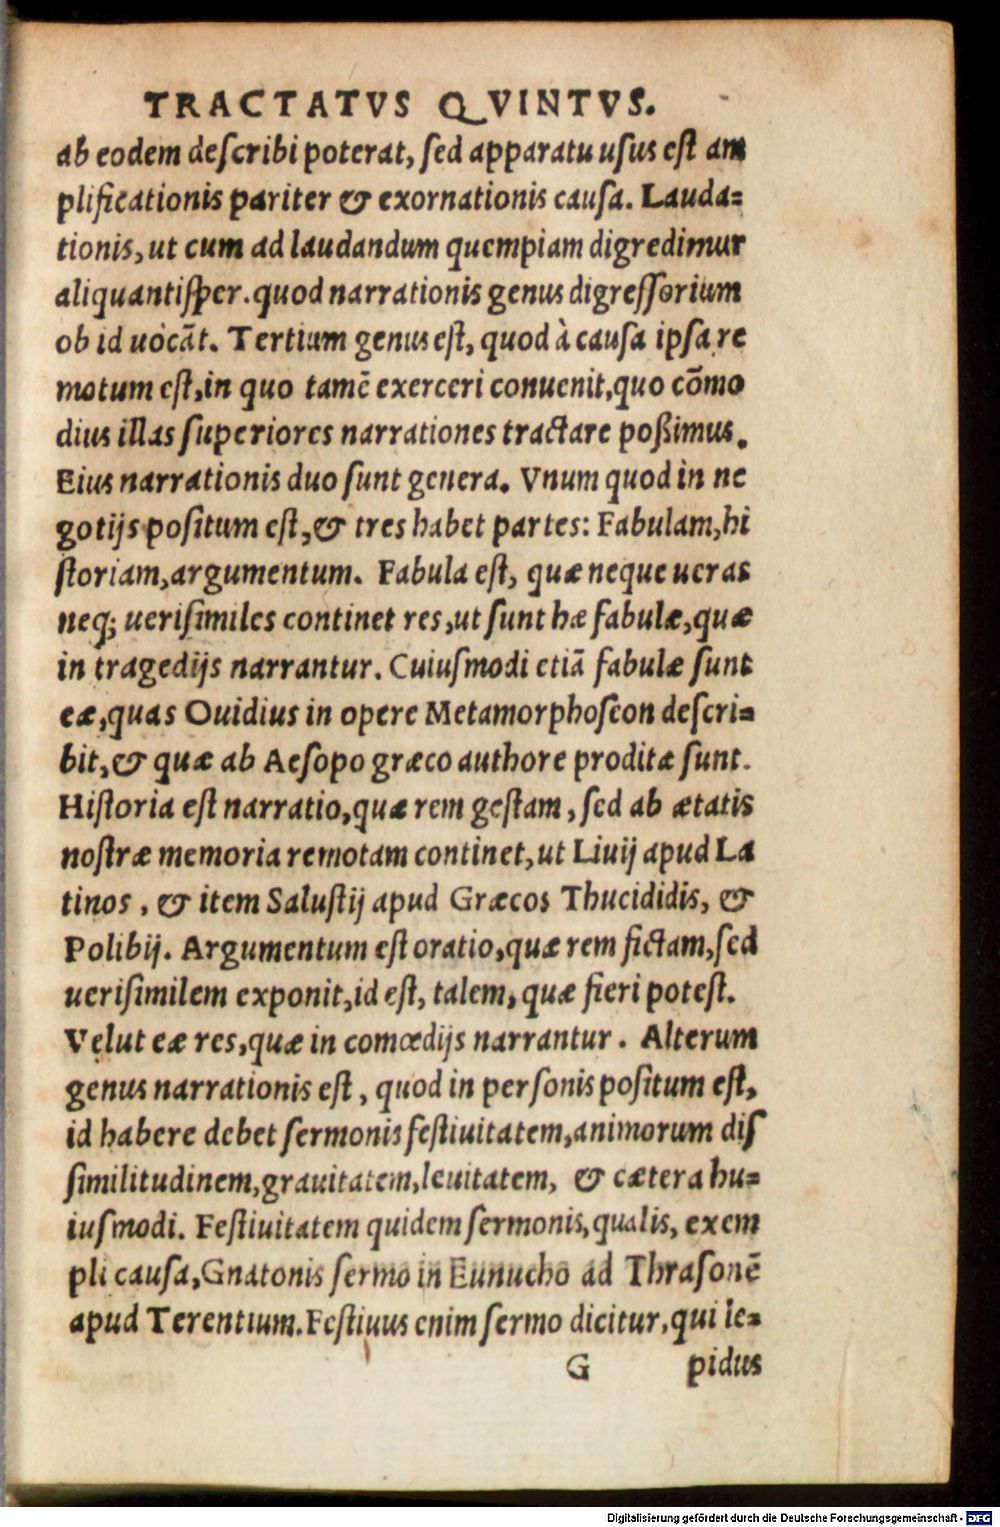 TRACTATVS QVINTVS.
ab eodem deſcribi poterat, ſed apparatu uſus eſt am
plificationis pariter & exornationis cauſa. Lauda=
tionis, ut cum ad laudandum quempiam digredimur
aliquantiſper. quod narrationis genus digreſſorium
ob id uocãt. Tertium genus eſt, quod à cauſa ipſa re
motum eſt, in quo tamẽ exerceri conuenit, quo cõmo
dius illas ſuperiores narrationes tractare poßimus.
Eius narrationis duo ſunt genera. Vnum quod in ne
gotijs poſitum eſt, & tres habet partes: Fabulam, hi
ſtoriam, argumentum. Fabula eſt, quæ neque ueras
neq; ueriſimiles continet res, ut ſunt hæ fabulæ, quæ
in tragedijs narrantur. Cuiuſmodi etiã fabulæ ſunt
eæ, quas Ouidius in opere Metamorphoſeon deſcri=
bit, & quæ ab Aeſopo græco authore proditæ ſunt.
Hiſtoria eſt narratio, quæ rem geſtam, ſed ab ætatis
noſtræ memoria remotam continet, ut Liuij apud La
tinos, & item Saluſtij apud Græcos Thucididis, &
Polibij. Argumentum eſt oratio, quæ rem fictam, ſed
ueriſimilem exponit, id eſt, talem, quæ fieri poteſt.
Velut eæ res, quæ in comœdijs narrantur. Alterum
genus narrationis eſt, quod in perſonis poſitum eſt,
id habere debet ſermonis feſtiuitatem, animorum diſ
ſimilitudinem, grauitatem, leuitatem, & cætera hu=
iuſmodi. Feſtiuitatem quidem ſermonis, qualis, exem
pli cauſa, Gnatonis ſermo in Eunucho ad Thraſonẽ
apud Terentium. Feſtiuus enim ſermo dicitur, qui le=
G pidus
Digitalisierung gefördert durch die Deutsche Forschungsgemeinschaft - DFG